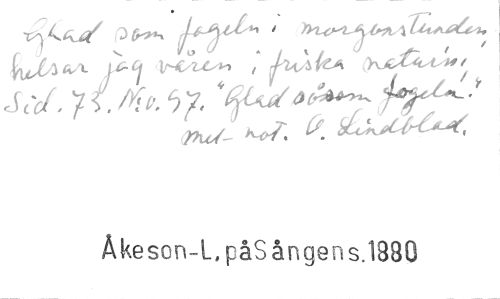 Glad som fogeln i morgonstunden,
helsar jag våren i friska natur'n!
Sid. 73. N:o. 97. "Glad såsom fogeln."
met not. O. Lindblad.
Åkeson-L, påSångens.1880